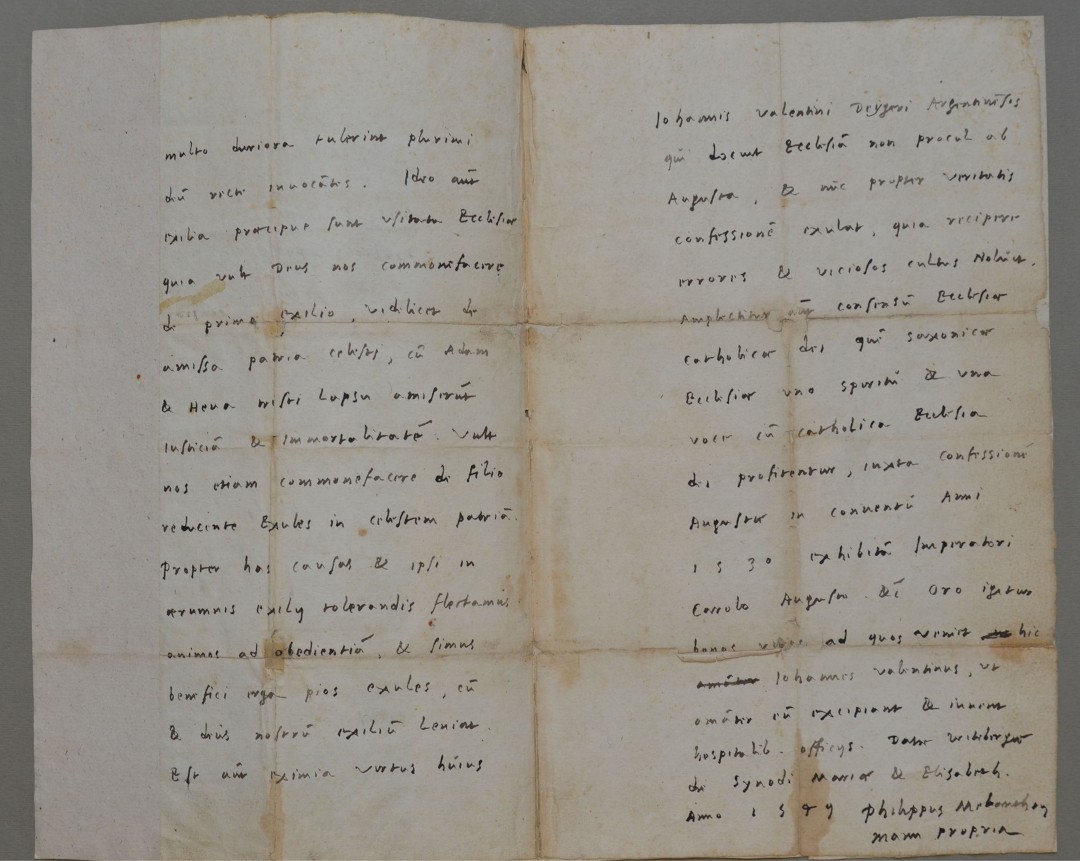 multo duriora tulerint plurimi
dũ recte inuocãtis. Ideo aũt
exilia præcipue sunt vsitata Ecclesiæ
quia vult Deus nos commonefacere
de primo exilio, videlicet de
amissa patria celesti, cũ Adam
& Heua tristi Lapsu amiserũt
Iusticiã & Immortalitatẽ. Vult
nos etiam commonefacere de filio
reducente Exules in celestem patriã.
Propter has causas & ipsi in
ærumnis exilij tolerandis flectamus
animos ad obedientiã, & simus
benefici erga pios exules, cũ
& deus nostrũ exiliũ Leniat.
Est aũt eximia virtus huius
Iohannis Valentini Argentinẽsis
qui docuit Ecclesiã non procul ab
Augusta, & nũc propter veritatis
confessionẽ exulat, quia recipere
errores & viciosos cultus Noluit.
Amplectitur aũt consensũ Ecclesiæ
catholicæ dei quẽ saxonicæ
Ecclesiæ vno spiritu & vna
voce cũ catholica Ecclesia
dei profitentur, iuxta confessionẽ
Augustæ in conuentu Anni
1530 exhibitã Imperatori
Carolo Augusto. &c̃ Oro igitur
bonos viros ad quos venit hic
Iohannes Valentinus, vt
amãter eũ excipiant & iuuent
hospitalib. officijs. Datæ Witebergæ
die Synodi Mariæ & Elisabeth.
Anno 1549 Philippus Melanthon
manu propria